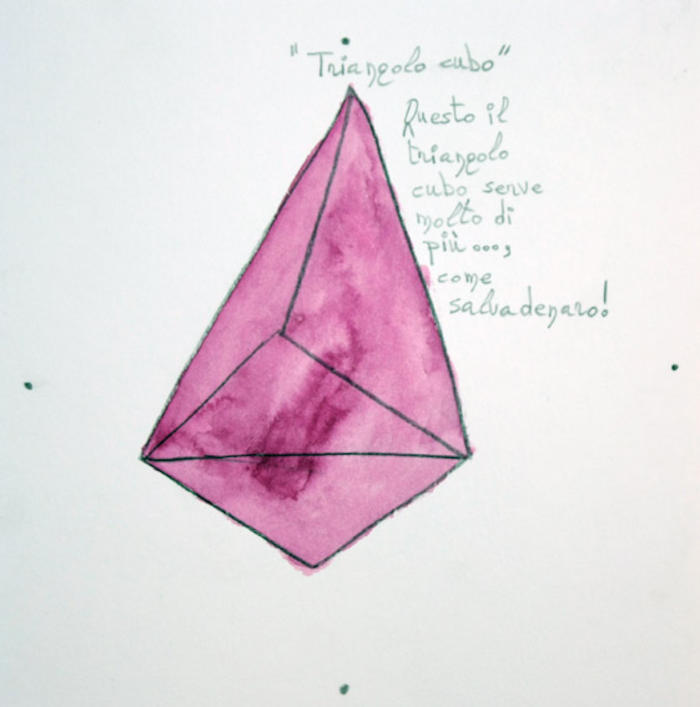 "Triangolo cubo"
Questo il
triangolo
cubo serve
molto di
più...,
come
salvadenaro!